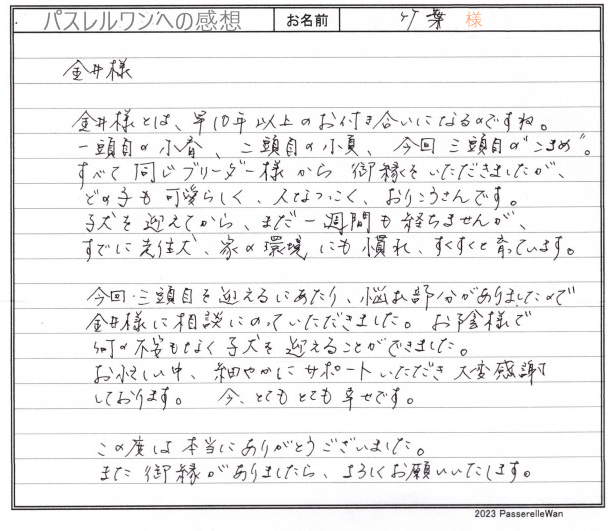 パスレルワンへの感想 お名前 竹葉 様
金井様
金井様とは、早10年以上のお付き合いになるのですね。
一頭目の小春、二頭目の小夏、今回三頭目が"こまめ"。
すべて同じブリーダー様から御縁をいただきましたが、
どの子も可愛らしく、人なつっこく、おりこうさんです。
子犬を迎えてから、まだ一週間も経ちませんが、
すでに先住犬、家の環境にも慣れ、すくすくと育っています。
今回、三頭目を迎えるにあたり、悩む部分がありましたので
金井様に相談にのっていただきました。お陰様で
何の不安もなく子犬を迎えることができました。
お忙しい中、細やかにサポートいただき大変感謝
しております。今、とてもとても幸せです。
この度は本当にありがとうございました。
また御縁がありましたら、よろしくお願いいたします。
2023 PasserelleWan